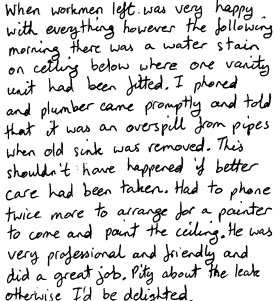 When workmen left was very happy
with everything however the following
morning there was a water stain
on ceiling below where one vanity
unit had been fitted. I phoned
and plumber came promptly and told
that it was an overspill from pipes
when old sink was removed. This
shouldn't have happened if better
care had been taken. Had to phone
twice more to arrange for a painter
to come and paint the ceiling. He was
very professional and friendly and
did a great job. Pity about the leak
otherwise I'd be delighted.